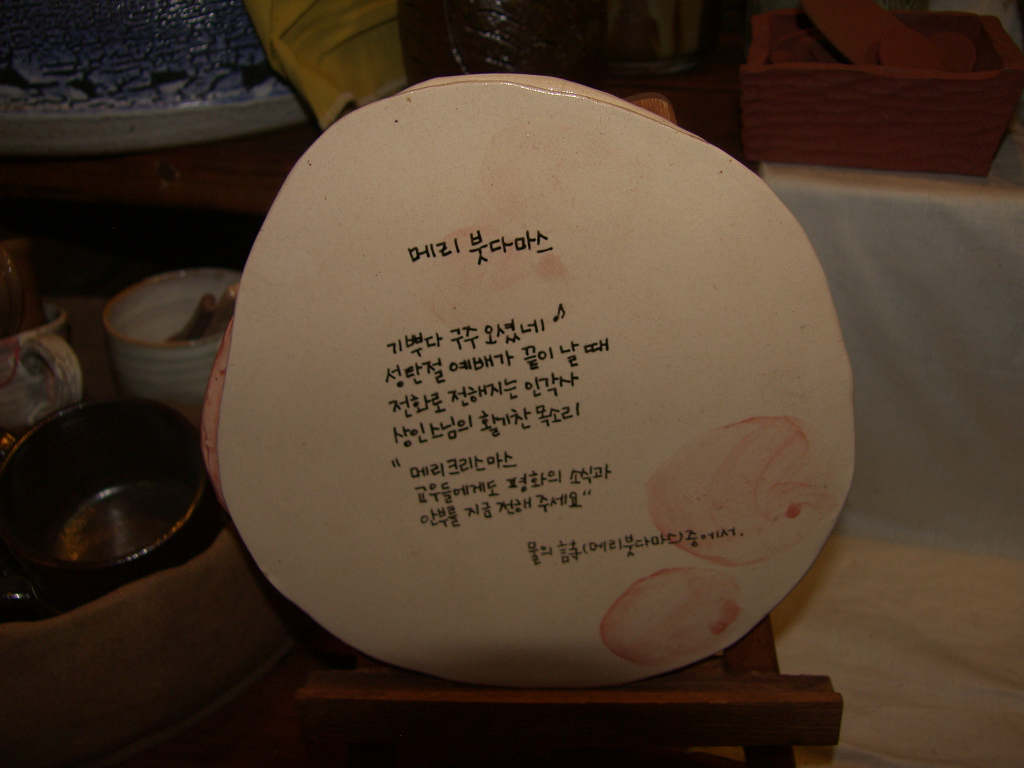 메리 붓다마스
기쁘다 구주 오셨네 ♪
성탄절 예배가 끝이 날 때
전화로 전해지는 인각사
상인스님의 활기찬 목소리
" 메리크리스마스
교우들에게도 평화의 소식과
안부를 지금 전해 주세요"
물의 (메리붓다마스)중에서.